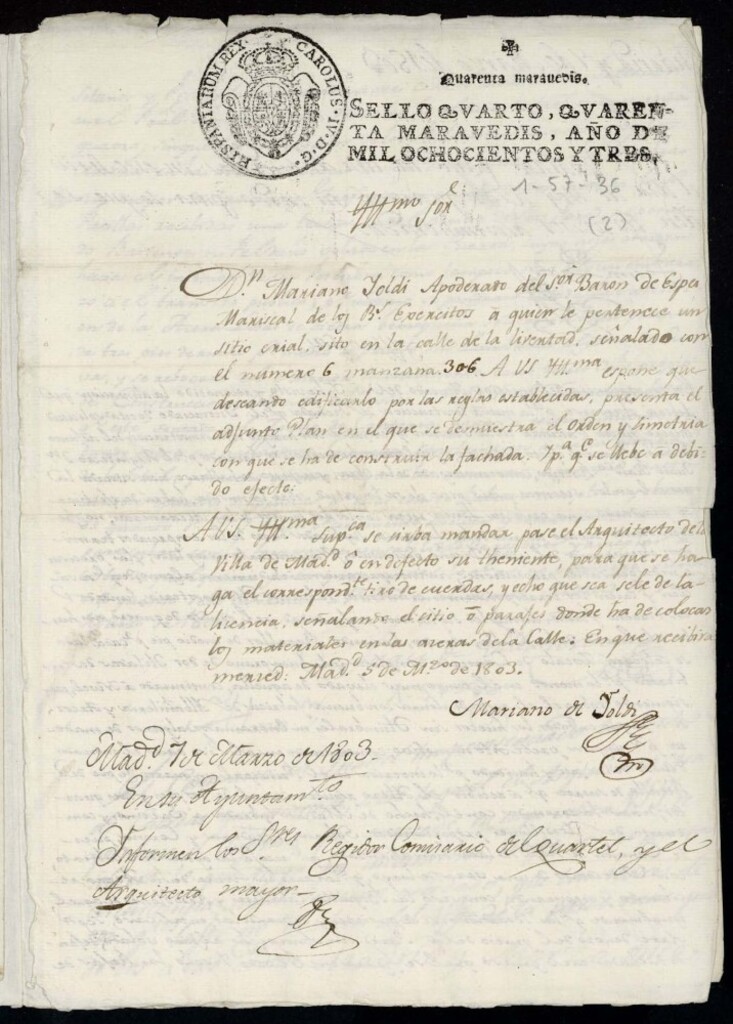 HISPANIARUM REX. CAROLUS·IV·D·G·
Quarenta maravedis.
SELLO QVARTO, QVAREN-
TA MARAVEDIS, AÑO DE
MIL OCHOCIENTOS Y TRES.
1-57-36
(2)
Yllmo Sor
Dn. Mariano Toldi Apoderado del Sor Baron de
Mariscal de los Rs. Exercitos a quien le pertenece un
sitio erial, sito en la calle de la livertad, señalado con
el numero 6 manzana. 306. A VS Yllma espone que
deseando edificarlo por las reglas establecidas, presenta el
adjunto Plan en el que se demuestra el orden y simetria
con que se ha de construir la fachada. Ypa. qe se llebe a debi-
do efecto:
A VS. Yllma Supca se sirba mandar pase el Arquitecto de la
Villa de Madd. ô en defecto su theniente, para que se ha-
ga el correspondte tiro de cuerdas, y echo que sea sele de la
licencia, señalando el sitio ô parajes donde ha de colocar
los materiales en las aceras de la Calle: En que recibira
merced: Madd. 5 de Mzo de 1803.
Mariano de Toldi
Madd. 7 de Marzo de 1803.
En su Ayuntamto
Informen los Sres Regidor Comisario del Quartel, y el
Arquitecto mayor